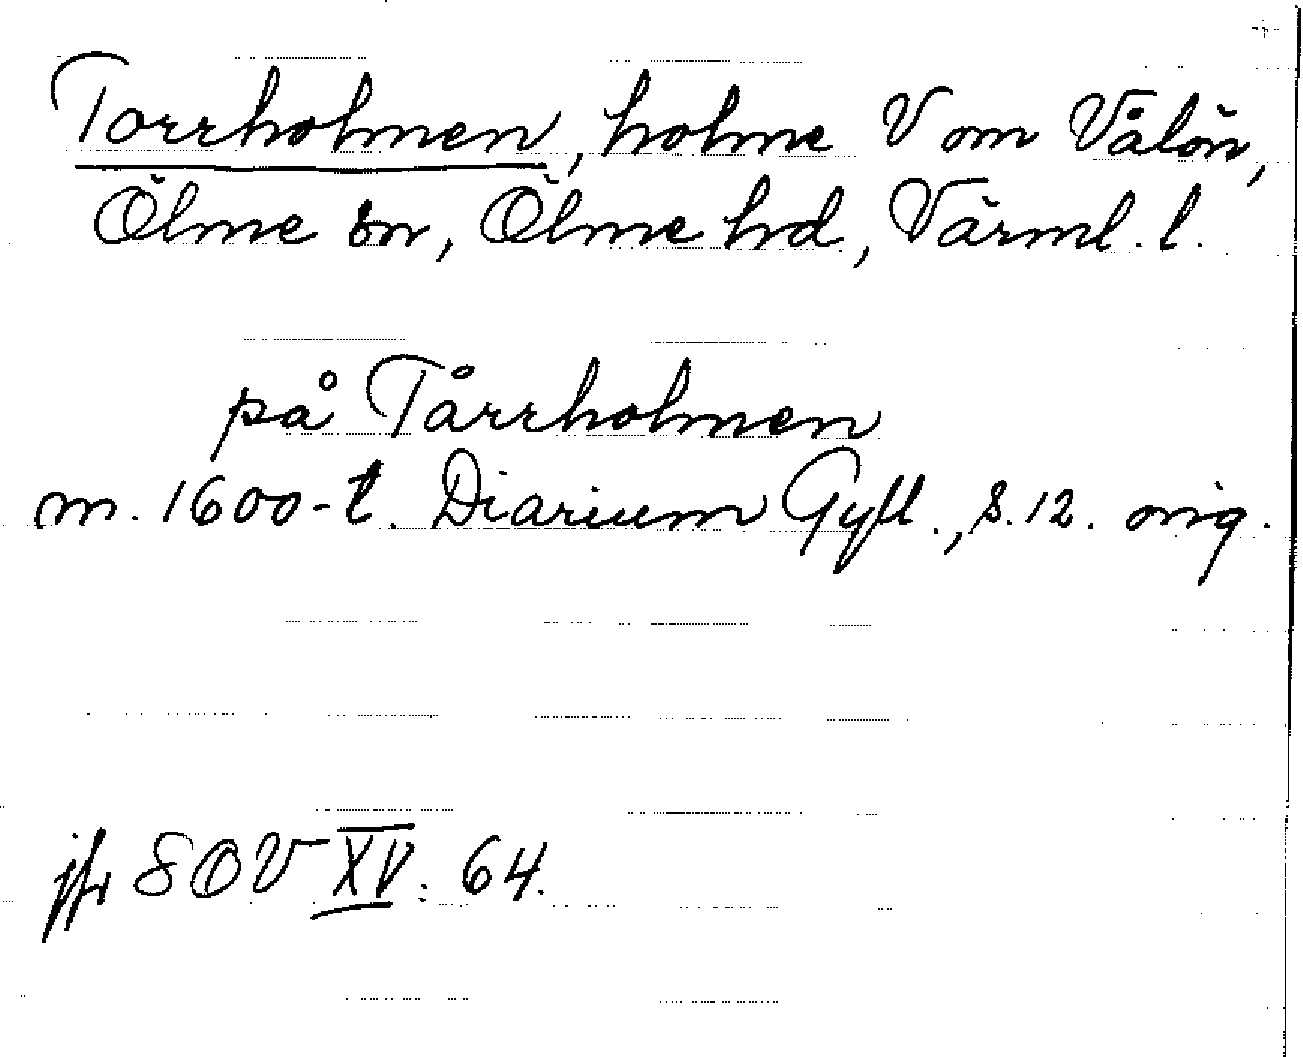 Torrholmen, holme V om Vålön,
Ölme sn, Ölme hd, Värml. l.
på Tårrholmen
m. 1600-t. Diarium Gyll., s. 12. orig.
jfr SOV XV: 64.